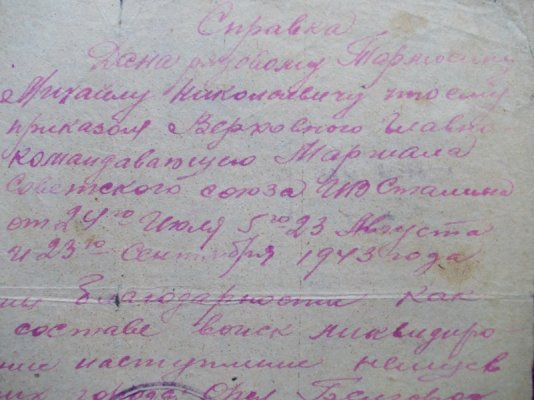 Справка
Дана рядовому Тормосину
Михаилу Николаевичу в том
приказом Верховного Главно
командавающего Маршала
Советского союза ИВ Сталина
от 24го Июля 5го 23 Августа
и 23го Сентября 1943 года
Благодарности как
составе войск ликвидиро
наступление немцев
города Орел Белгород